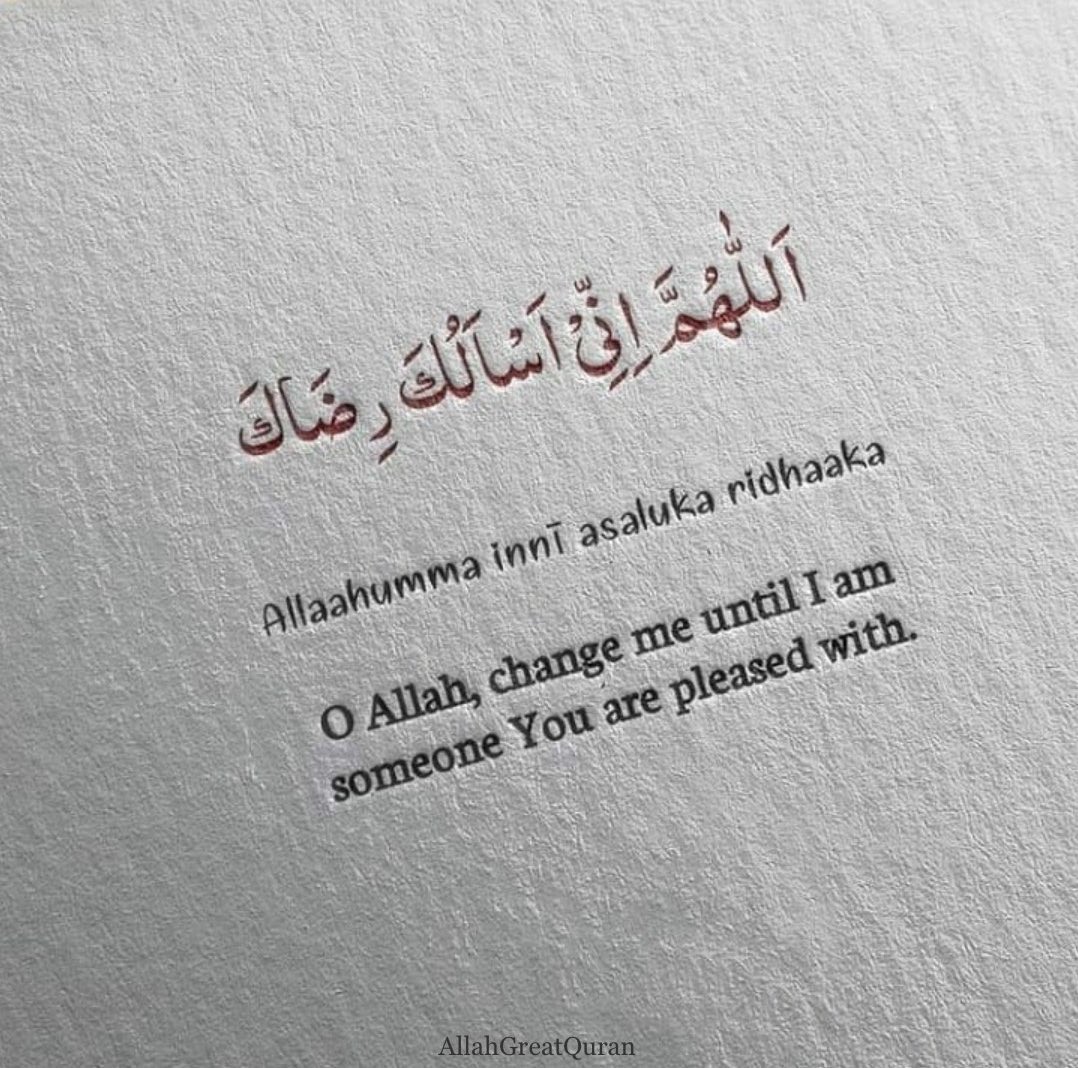 اَللّٰهُمَّ اِنِّيْ اَسْاَلُكَ رِضَاكَ
Allaahumma innī asaluka ridhaaka
O Allah, change me until I am
someone You are pleased with.
AllahGreatQuran